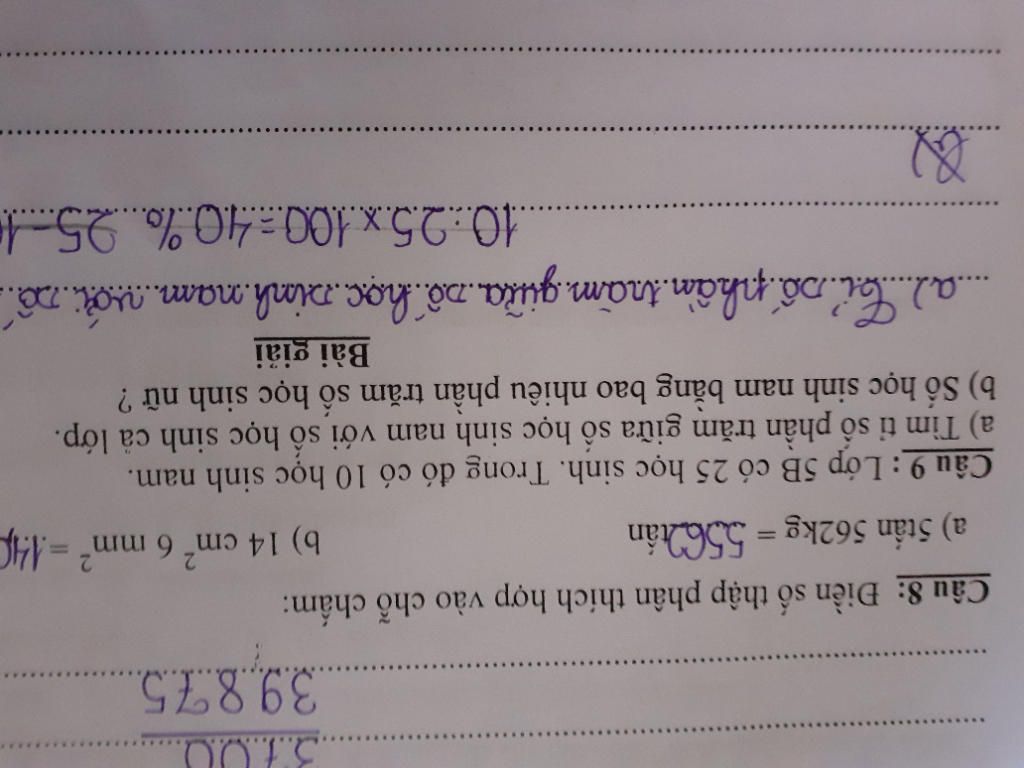 5100
39875
Câu 8: Điền số thập phân thích hợp vào chỗ chấm:
a) 5tấn 562kg = 5562tấn b) 14 cm² 6 mm² =
Câu 9: Lớp 5B có 25 học sinh. Trong đó có 10 học sinh nam.
a) Tìm tỉ số phần trăm giữa số học sinh nam với số học sinh cả lớp.
b) Số học sinh nam bằng bao nhiêu phần trăm số học sinh nữ ?
Bài giải
a) Tỉ số phần trăm giữa số học sinh nam với số
10 : 25 x 100 = 40% 25 - 1
b)